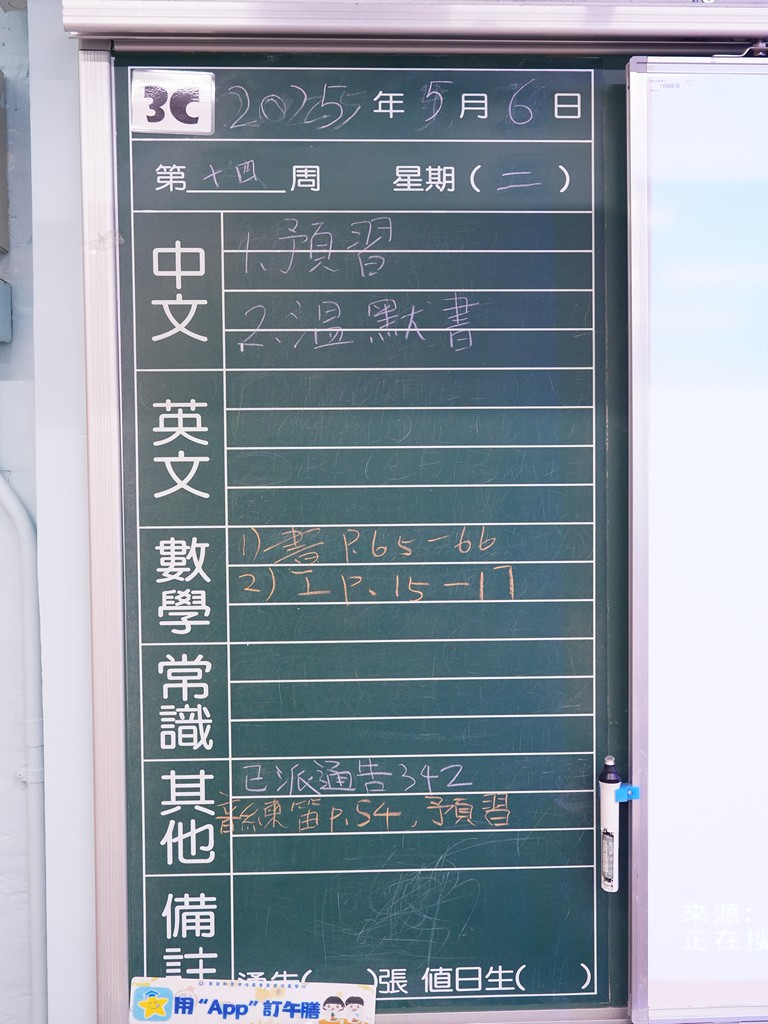 3C 2025年5月6日
第十四周 星期(二)
中文
1.預習
2.溫默書
英文
數學
1)書P.65-66
2)工P.15-17
常識
其他
已派通告342
音練笛p.54,預習
備註
通告( )張 值日生( )
用“App”訂午膳
來源:
正在搜